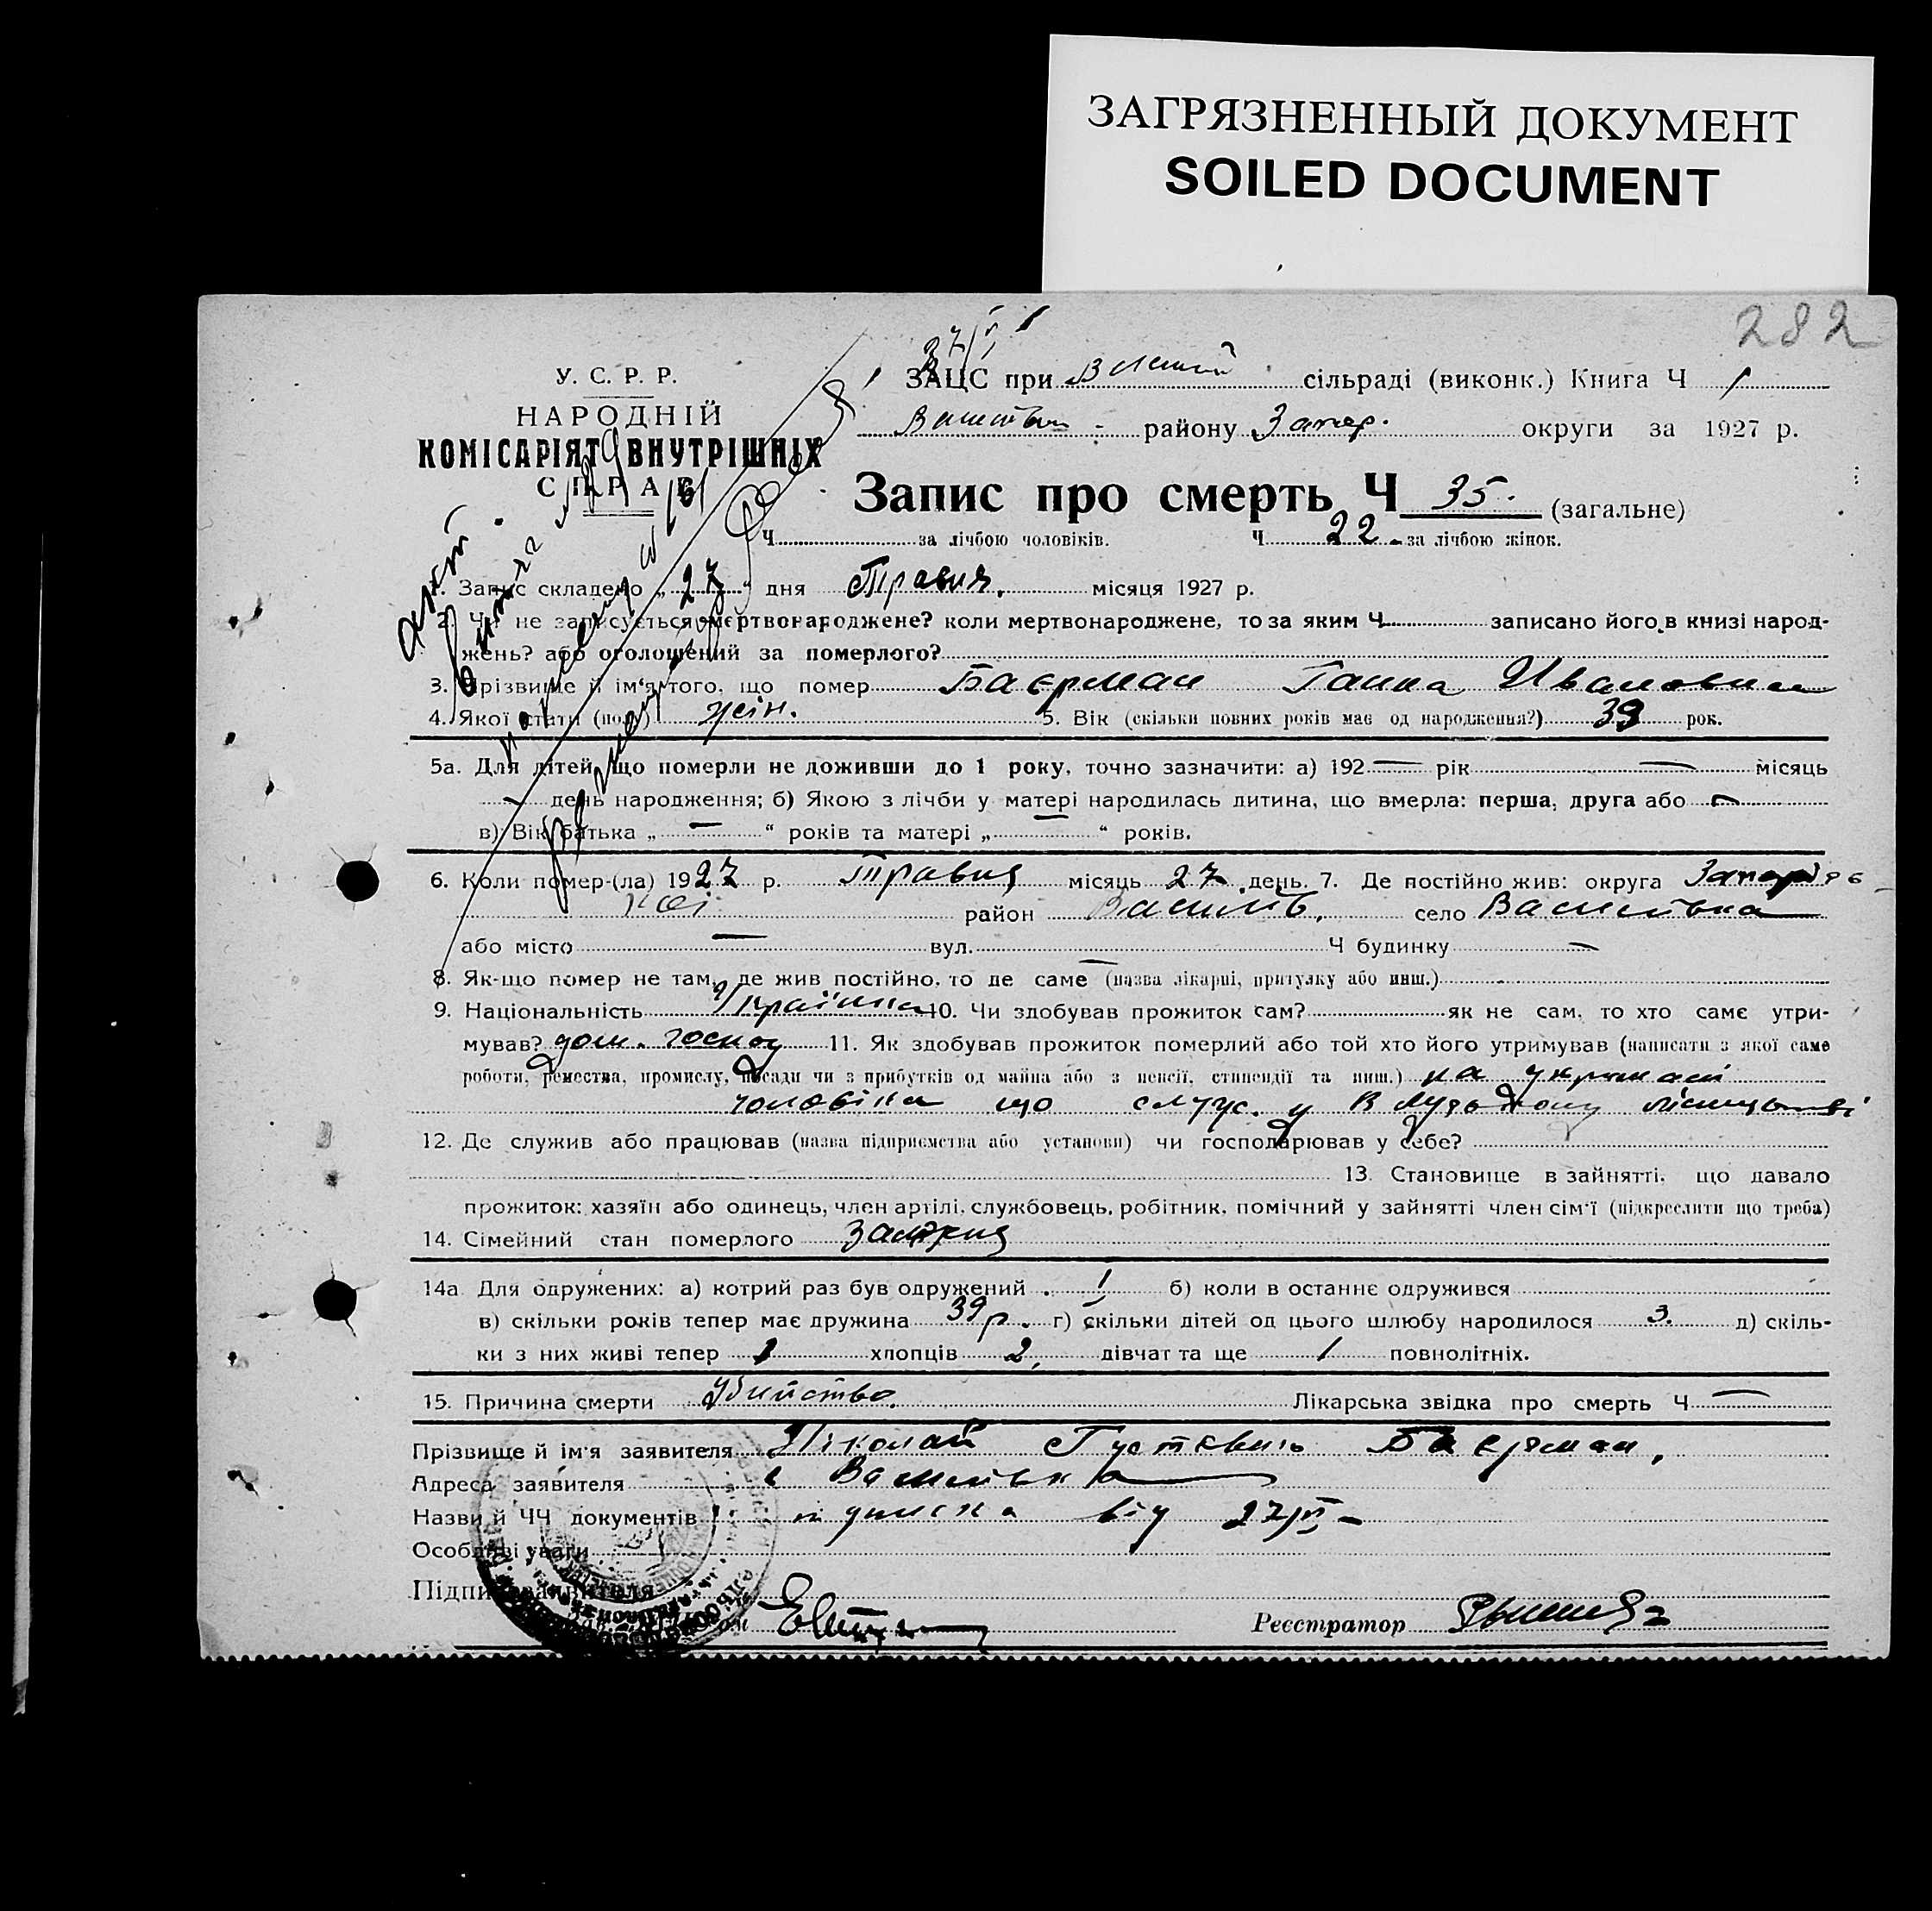 ЗАГРЯЗНЕННЫЙ ДОКУМЕНТ
SOILED DOCUMENT
282
27/V
У. С. Р. Р.
НАРОДНІЙ
КОМІСАРІЯТ ВНУТРІШНІХ
СПРАВ
ЗАЦС при сільраді (виконк.) Книга Ч 1
району Запор. округи за 1927 р.
Запис про смерть Ч 35. (загальне)
Ч за лічбою чоловіків. Ч 22 за лічбою жінок.
1. Запис складено „ 27 " дня Травня. місяця 1927 р.
2. Чи не записується мертвонароджене? коли мертвонароджене, то за яким Ч записано його в книзі народ-
жень? або оголошений за померлого?
3. Прізвище й ім'я того, що помер Баєрман Ганна Ивановна
4. Якої стати (полу) жін. 5. Вік (скільки повних років має од народження?) 39 рок.
5а. Для дітей, що померли не доживши до 1 року, точно зазначити: а) 192— рік — місяць
— день народження; б) Якою з лічби у матері народилась дитина, що вмерла: перша, друга або —
в) Вік батька „ — “ років та матері „ — “ років.
6. Коли помер-(ла) 1927 р. Травня місяць 27 день. 7. Де постійно жив: округа Запоріж-
кої район Василів. село Василівка
або місто — вул. Ч будинку —
8. Як-що помер не там, де жив постійно, то де саме — (назва лікарні, притулку або инш.)
9. Національність Українка 10. Чи здобував прожиток сам? як не сам, то хто саме утри-
мував? дом. господ 11. Як здобував прожиток померлий або той хто його утримував (написати з якої саме
роботи, ремества, промислу, посади чи з прибутків од майна або з пенсії, стипендії та инш.) на утриманні
чоловіка що служ. у
12. Де служив або працював (назва підприємства або установи) чи господарював у себе?
13. Становище в зайнятті, що давало
прожиток: хазяїн або одинець, член артілі, службовець, робітник, помічний у зайнятті член сім'ї (підкреслити що треба)
14. Сімейний стан померлого
14а Для одружених: а) котрий раз був одружений 1 б) коли в останнє одружився
в) скільки років тепер має дружина 39 р. г) скільки дітей од цього шлюбу народилося 3. д) скіль-
ки з них живі тепер 1 хлопців 2, дівчат та ще 1 повнолітніх.
15. Причина смерти Убийство. Лікарська звідка про смерть Ч —
Прізвище й ім'я заявителя Ніколай Густавович Баєрман,
Адреса заявителя с Василівка
Назви й ЧЧ документів підписка від 27/V-
Особливі уваги
Підпис заявителя
Реєстратор